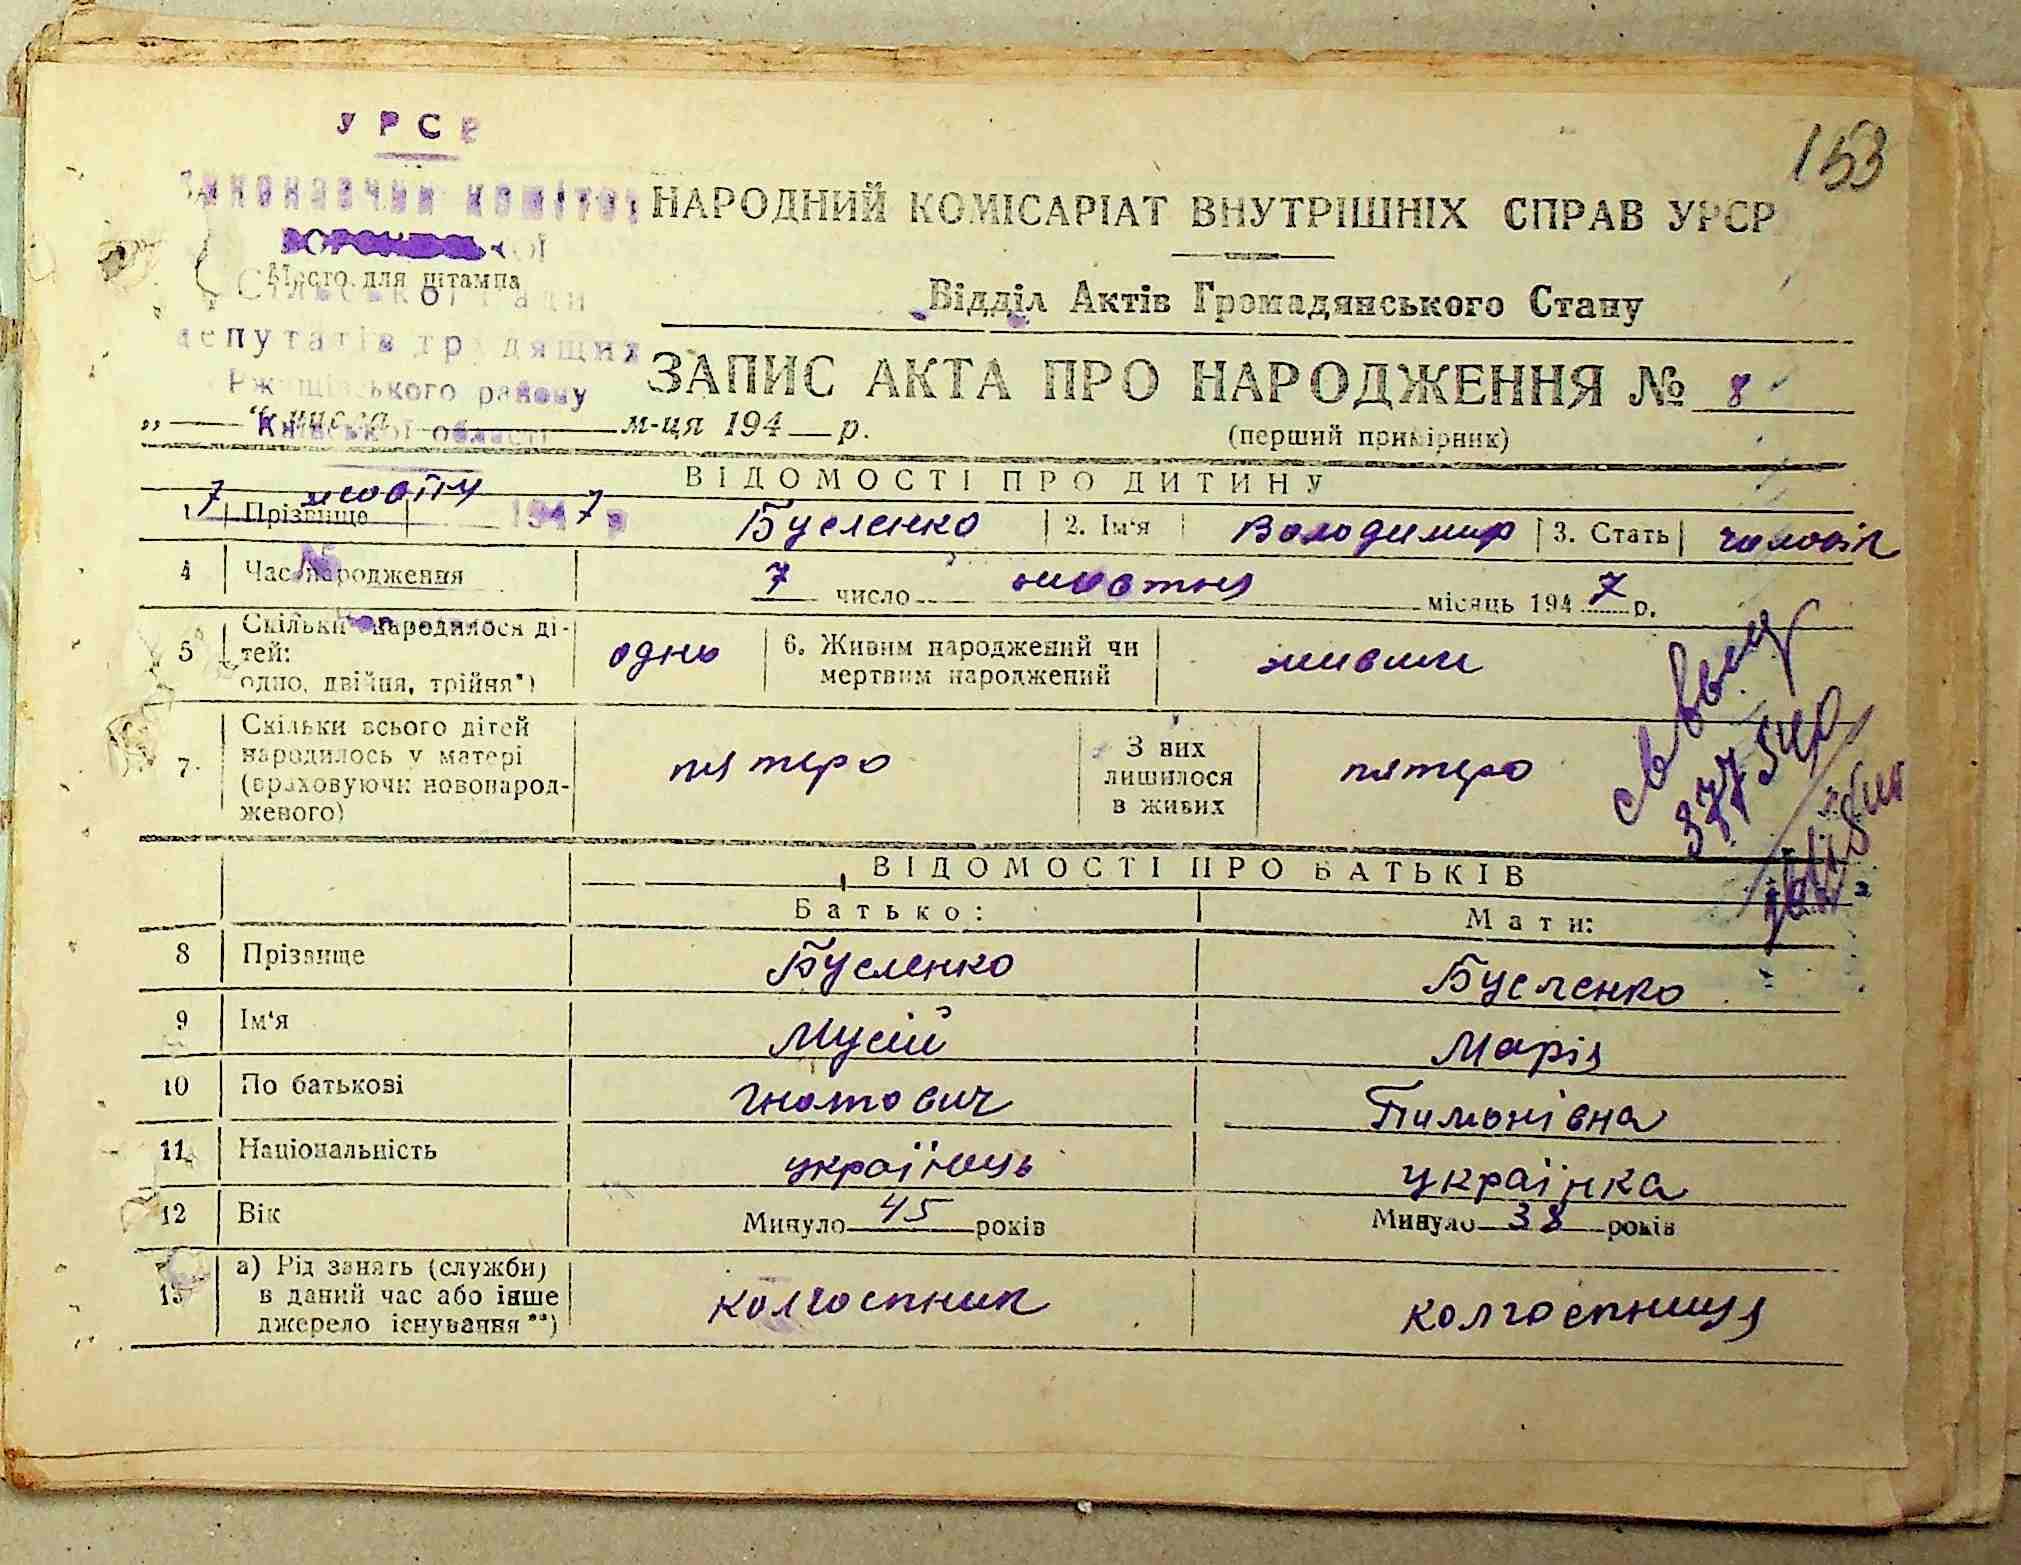 153
УРСР
Виконавчий комітет
НАРОДНИЙ КОМІСАРІАТ ВНУТРІШНІХ СПРАВ УРСР
Место для штампа
Сільської Ради
Відділ Актів Громадянського Стану
депутатів трудящих
Ржищівського району
Київської області
ЗАПИС АКТА ПРО НАРОДЖЕННЯ № 8
„ “ числа м-ця 194 р.
(перший примірник)
7 жовтн 1947 р
№
ВІДОМОСТІ ПРО ДИТИНУ
1 Прізвище Бусленко 2. Ім‘я Володимир 3. Стать чоловіч
4 Час народження 7 число жовтня місяць 1947 р.
5 Скільки народилося ді-
тей:
одно, двійня, трійня*) одно 6. Живим народжений чи
мертвим народжений живим
7. Скільки всього дітей
народилось у матері
(враховуючи новонарод-
женого) пятеро З них
лишилося
в живих пятеро
377540
ВІДОМОСТІ ПРО БАТЬКІВ
Батько: Мати:
8 Прізвище Бусленко Бусленко
9 Ім‘я Мусій Марія
10 По батькові Гнатович Пимонівна
11 Національність українець українка
12 Вік Минуло 45 років Минуло 38 років
13 а) Рід занять (служби)
в даний час або інше
джерело існування**) колгоспник колгоспниця